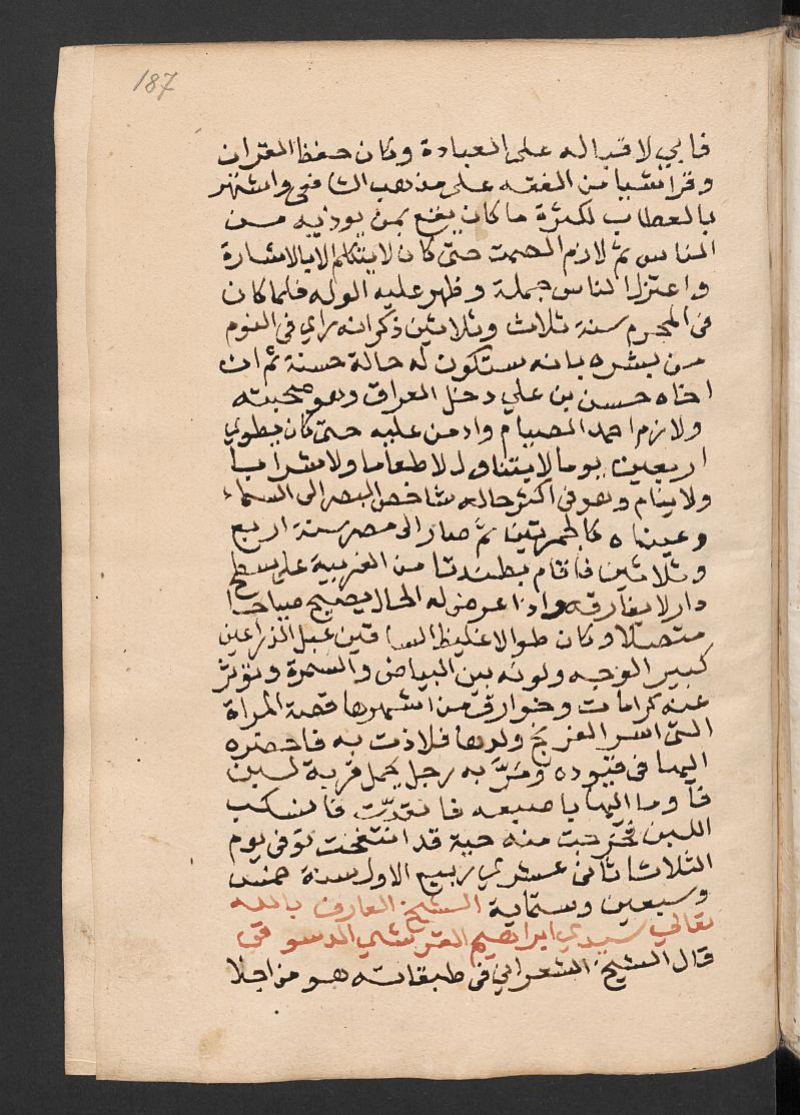 187
فابي لاقباله على العبادة وكان حفظ القران
وقرا شيا من الفقه على مذهب الشافعي واشتهر
بالعطاب لكثرة ما كان يقع بمن يوذيه من
الناس ثم لازم الصمت حتى كان لا يتكلم الا بالاشارة
واعتزل الناس جملة وظهر عليه الوله فلما كان
في المحرم سنة ثلاث وثلاثين ذكر انه راي في النوم
من بشره بانه ستكون له حالة حسنة ثم ان
اخاه حسن بن علي دخل العراق وهو صحبته
ولازم احمد الصيام وادمن عليه حتى كان يطوي
اربعين يوما لا يتناول طعاما ولا شرابا
ولا ينام وهو في اكثر حاله شاخص البصر الى السماء
وعيناه كالجمرتين ثم صار الى مصر سنة اربع
وثلاثين فاقام بطندتا من الغربية على سطح
دار لا يفارقه واذا عرض له الحال يصيح صياحا
متصلا وكان طوالا غليظ الساقين عبل الذراعين
كبير الوجه ولونه بين البياض والسمرة وتوثر
عنه كرامات وخوارق من اشهرها قصة المراة
التي اسر الفرنج ولدها فلاذت به فاحضره
اليها في قيوده ومَرَّ به رجل يحمل قربة لبن
فاوما اليها باصبعه فانقدّت فانسكب
اللبن فخرجت منه حية قد انتفخت توفي يوم
الثلاثا ثاني عشري ربيع الاول سنة خمس
وسبعين وستماية الشيخ العارف بالله
تعالي سيدي ابراهيم القرشي الدسوقي
قال الشيخ الشعراني في طبقاته هو من اجلا